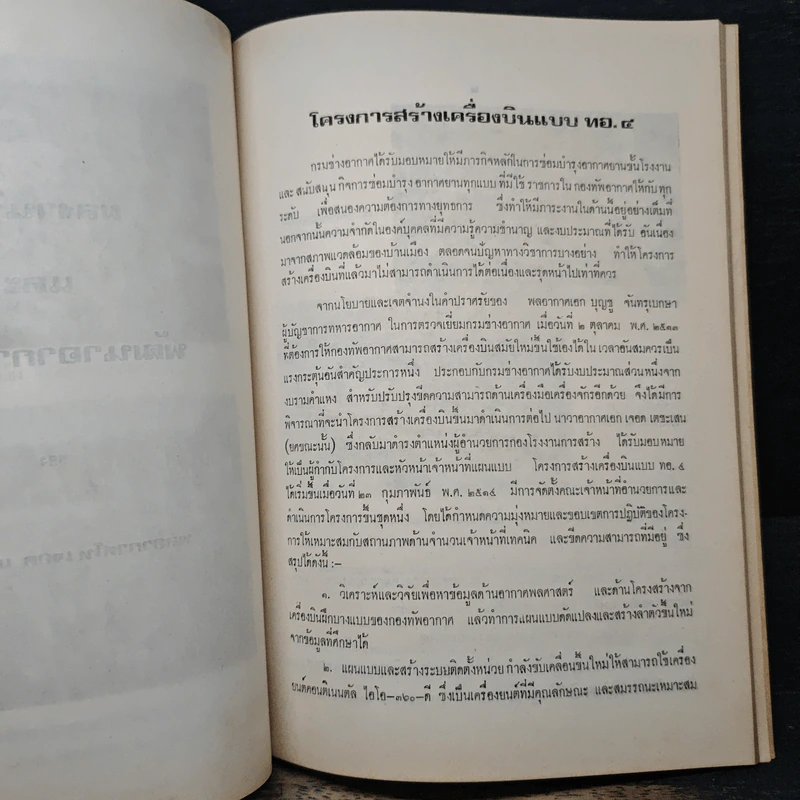 โครงการสร้างเครื่องบินแบบ ทอ. ๔
กรมช่างอากาศได้รับมอบหมายให้มีภารกิจหลักในการซ่อมบำรุงอากาศยานขั้นโรงงาน
และ สนับสนุน กิจการ ซ่อมบำรุง อากาศยานทุกแบบ ที่มีใช้ ราชการใน กองทัพอากาศให้กับ ทุก
ระดับ เพื่อสนองความต้องการทางยุทธการ ซึ่งทำให้มีภาระงานในด้านนี้อยู่อย่างเต็มที่
นอกจากนั้นความจำกัดในองค์บุคคลที่มีความรู้ความชำนาญ และงบประมาณที่ได้รับ อันเนื่อง
มาจากสภาพแวดล้อมของบ้านเมือง ตลอดจนปัญหาทางวิชาการบางอย่าง ทำให้โครงการ
สร้างเครื่องบินที่แล้วมาไม่สามารถดำเนินการได้ต่อเนื่องและรุดหน้าไปเท่าที่ควร
จากนโยบายและเจตจำนงในคำปราศรัยของ พลอากาศเอก บุญชู จันทรุเบกษา
ผู้บัญชาการทหารอากาศ ในการตรวจเยี่ยมกรมช่างอากาศ เมื่อวันที่ ๒ ตุลาคม พ.ศ. ๒๕๑๓
ที่ต้องการให้กองทัพอากาศสามารถสร้างเครื่องบินสมัยใหม่ขึ้นใช้เองได้ใน เวลาอันสมควรเป็น
แรงกระตุ้นอันสำคัญประการหนึ่ง ประกอบกับกรมช่างอากาศได้รับงบประมาณส่วนหนึ่งจาก
งบรามคำแหง สำหรับปรับปรุงขีดความสามารถด้านเครื่องมือเครื่องจักรอีกด้วย จึงได้มีการ
พิจารณาที่จะนำโครงการสร้างเครื่องบินขึ้นมาดำเนินการต่อไป นาวาอากาศเอก เจอด เตชะเสน
(ยศขณะนั้น) ซึ่งกลับมาดำรงตำแหน่งผู้อำนวยการกองโรงงานการสร้าง ได้รับมอบหมาย
ให้เป็นผู้กำกับโครงการและหัวหน้าเจ้าหน้าที่แผนแบบ โครงการสร้างเครื่องบินแบบ ทอ. ๔
ได้เริ่มขึ้นเมื่อวันที่ ๒๓ กุมภาพันธ์ พ.ศ. ๒๕๑๔ มีการจัดตั้งคณะเจ้าหน้าที่อำนวยการและ
ดำเนินการโครงการขึ้นชุดหนึ่ง โดยได้กำหนดความมุ่งหมายและขอบเขตการปฏิบัติของโครง-
การให้เหมาะสมกับสถานภาพด้านจำนวนเจ้าหน้าที่เทคนิค และขีดความสามารถที่มีอยู่ ซึ่ง
สรุปได้ดังนี้ :–
๑. วิเคราะห์และวิจัยเพื่อหาข้อมูลด้านอากาศพลศาสตร์ และด้านโครงสร้างจาก
เครื่องบินฝึกบางแบบของกองทัพอากาศ แล้วทำการแผนแบบดัดแปลงและสร้างลำตัวขึ้นใหม่
จากข้อมูลที่ศึกษาได้
๒. แผนแบบและสร้างระบบติดตั้งหน่วย กำลังขับเคลื่อนขึ้นใหม่ให้สามารถใช้เครื่อง
ยนต์คอนติเนนตัล ไอโอ–๓๖๐–ดี ซึ่งเป็นเครื่องยนต์ที่มีคุณลักษณะ และสมรรถนะเหมาะสม